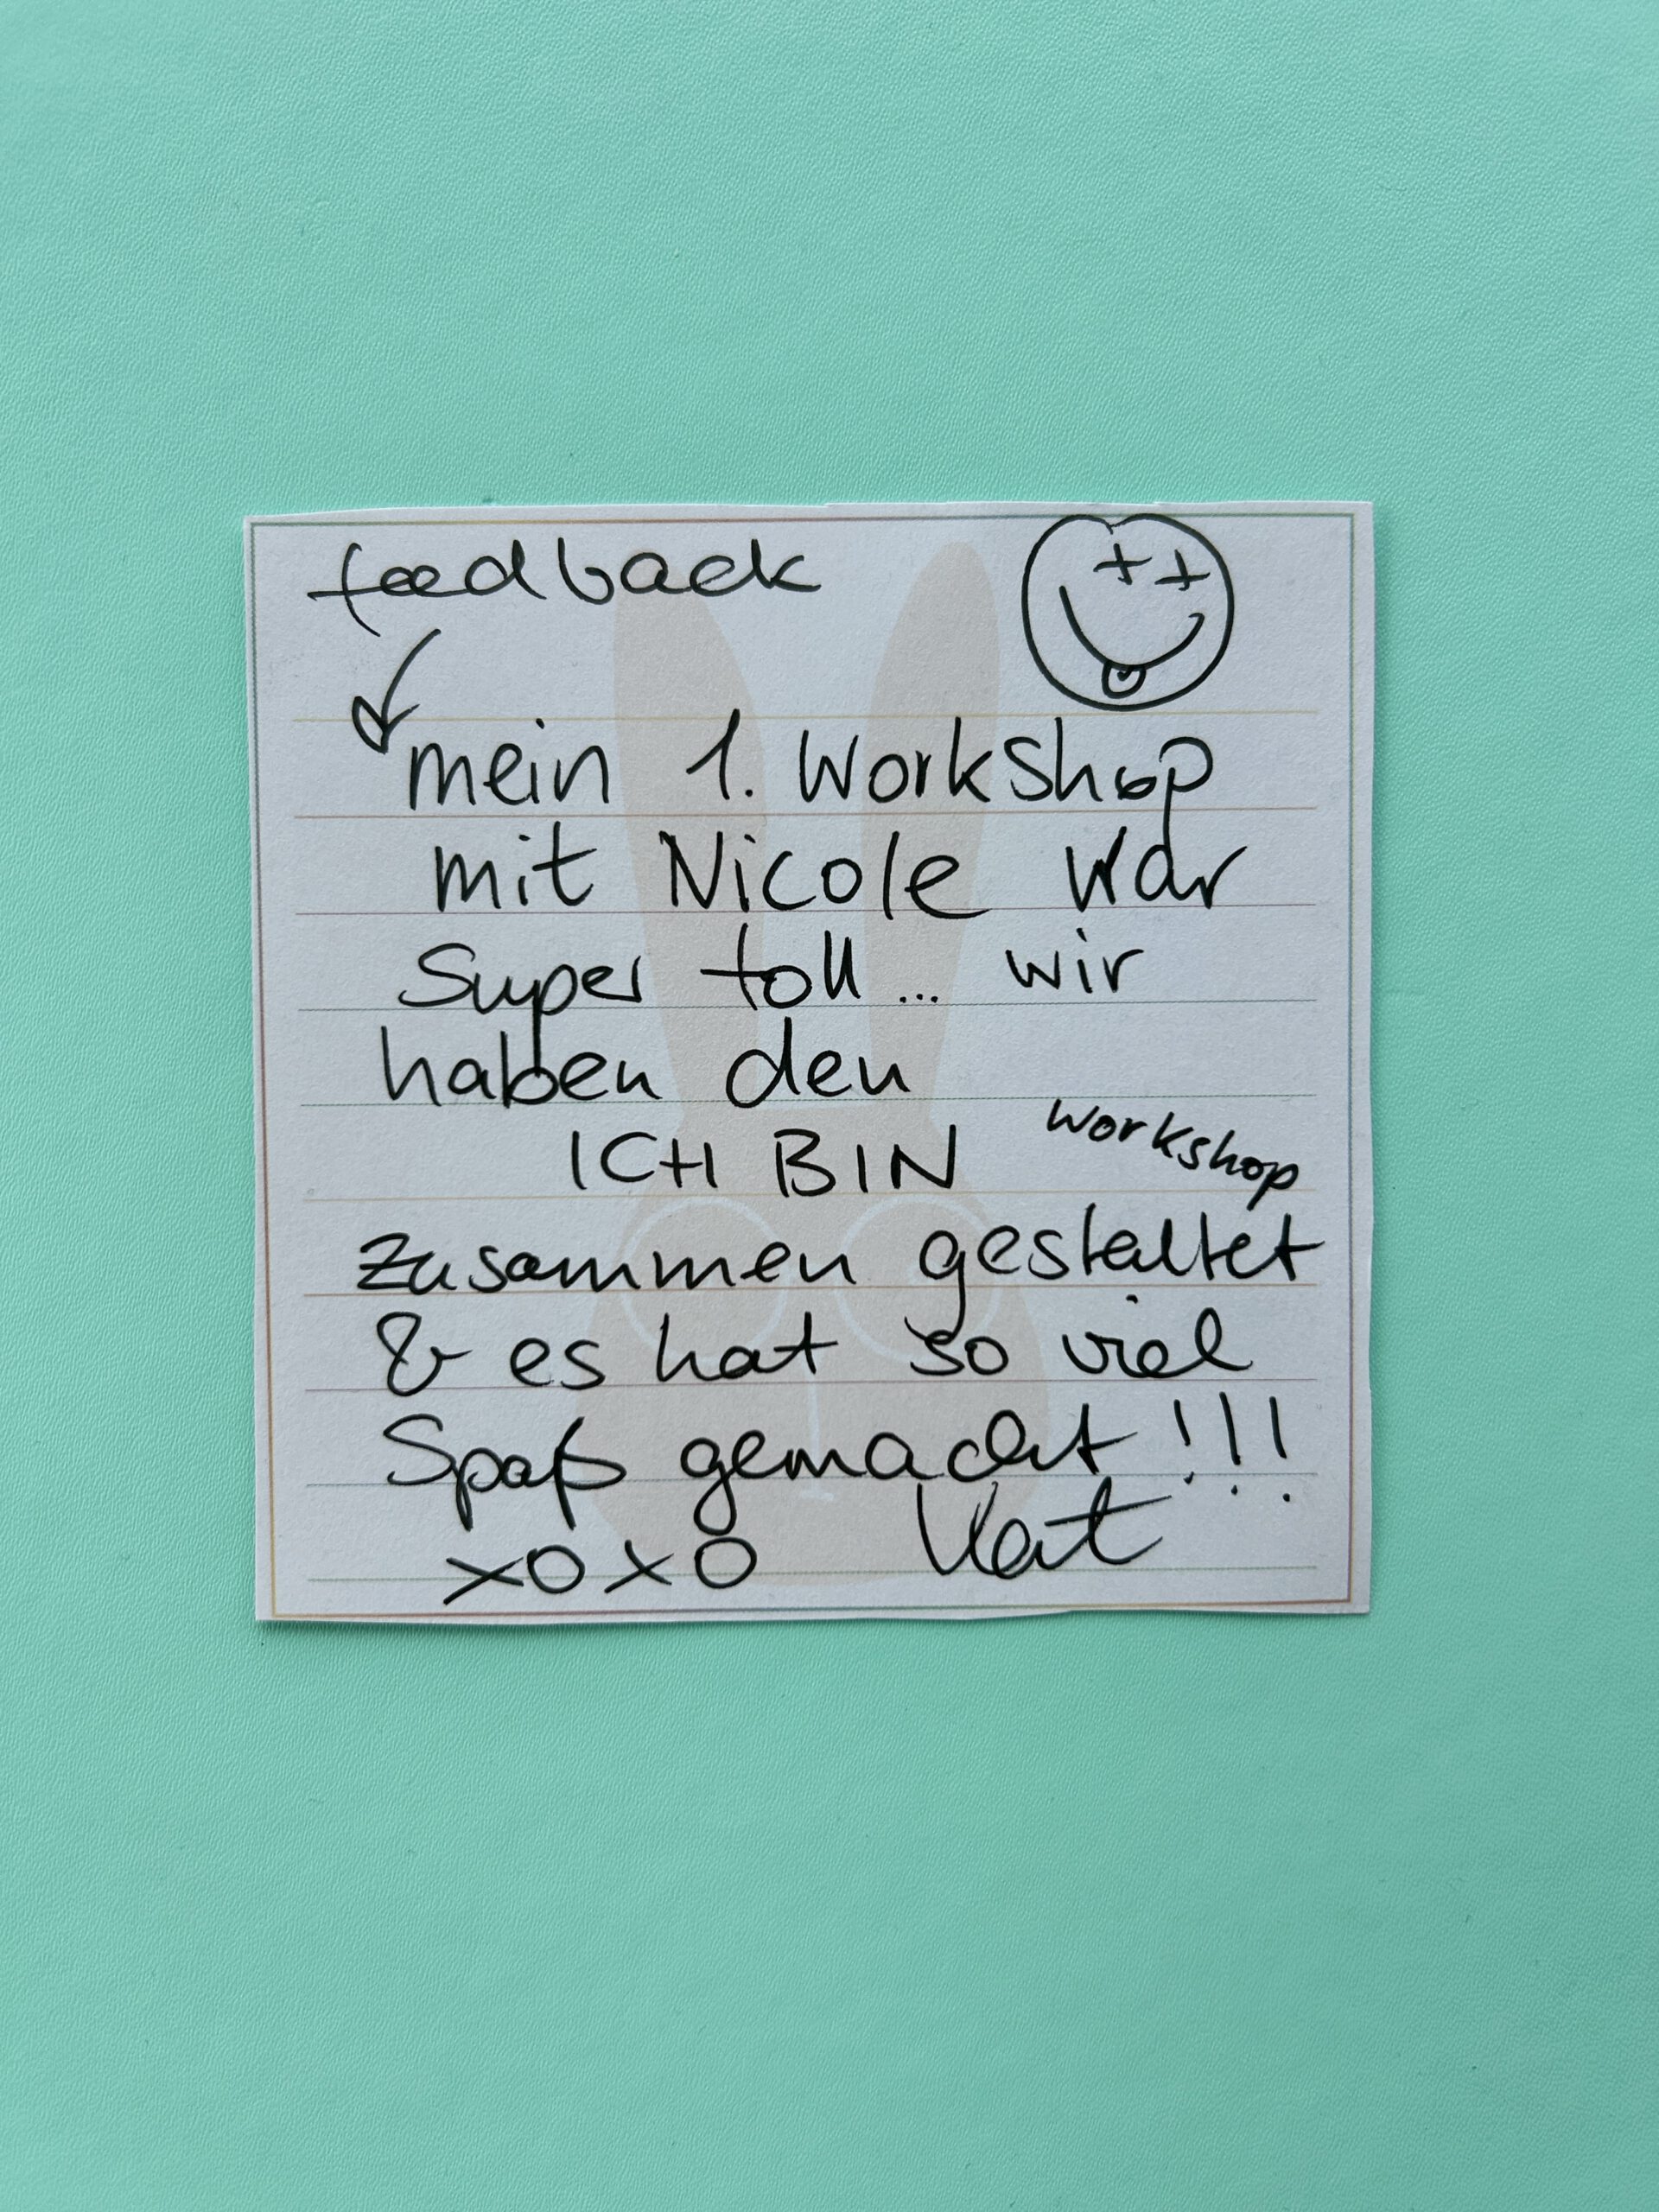 feedback
mein 1. Workshop
mit Nicole war
Super toll... wir
haben den
ICH BIN workshop
zusammen gestaltet
& es hat so viel
Spaß gemacht!!!
xoxo Kat